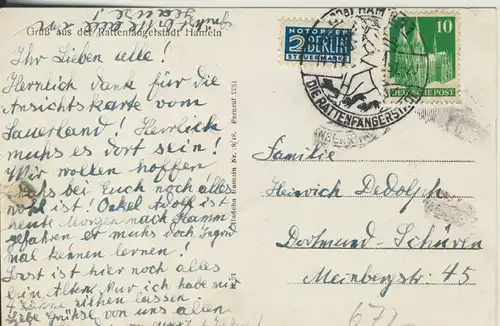 Gruß aus der Rattenfängerstadt Hameln
Ihr Lieben alle!
Herzlich dank für die
Ansichtskarte vom
Sauerland! Herrlich
muhs es dort sein!
Wir wollen hoffen
das bei Euch noch alles
wohl ist! Onkel Adolf ist
heute Morgen nach Hamm
gefahren er muhs doch Ingrid
mal kennen lernen!
Sonst ist hier noch alles
beim Alten. Nur ich habe mir
4 Zähne ziehen lassen
Liebe Grühse von uns allen
NOTOPFER
2 BERLIN
STEUERMARKE
HAMELN
DIE RATTENFÄNGERSTADT
10
DEUTSCHE POST
Familie
Heinrich Dedolph
Dortmund-Schüren
Meinbergstr. 45
677